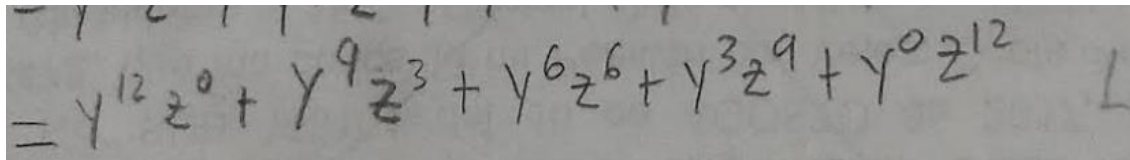 = y¹² z⁰ + y⁹ z³ + y⁶ z⁶ + y³ z⁹ + y⁰ z¹²